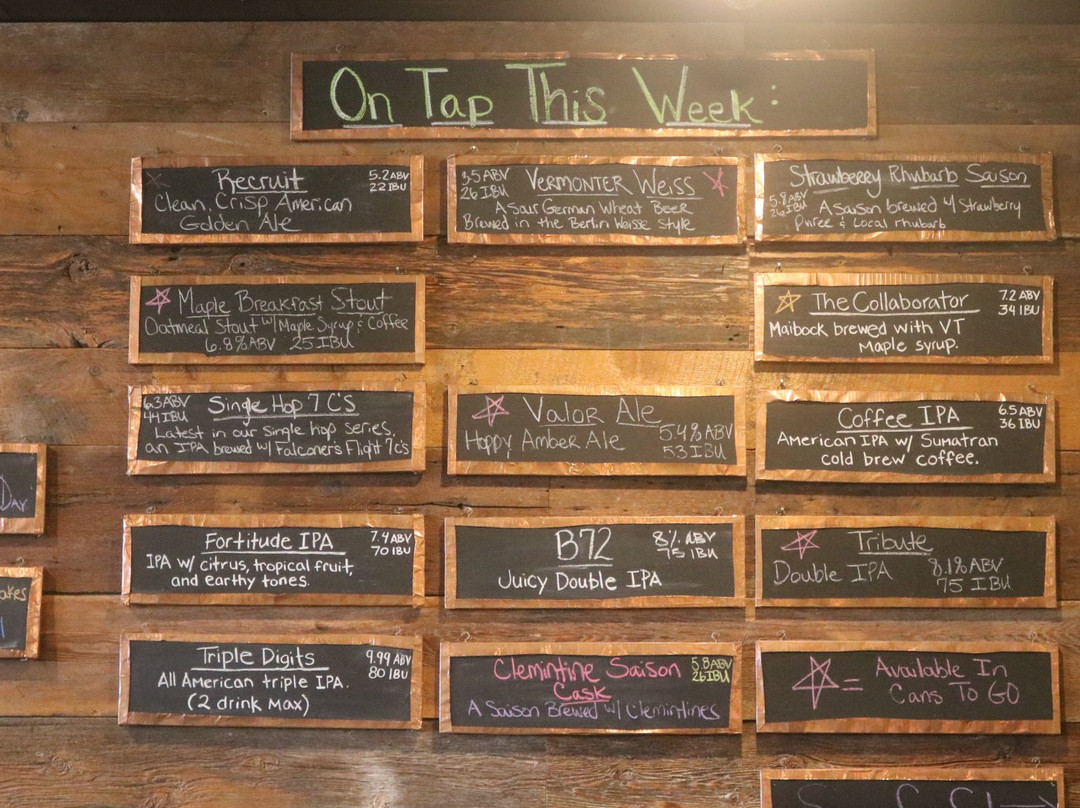 On Tap This Week:
Recruit
5.2 ABV
22 IBU
Clean, Crisp American
Golden Ale
3.5 ABV
26 IBU
Vermonter Weiss
A Sour German Wheat Beer
Brewed in the Berlin Weisse Style
Strawberry Rhubarb Saison
5.8 ABV
26 IBU
A saison brewed w/ Strawberry
Puree & Local rhubarb
Maple Breakfast Stout
Oatmeal Stout w/ Maple Syrup & Coffee
6.8% ABV 25 IBU
The Collaborator
7.2 ABV
34 IBU
Maibock brewed with VT
Maple syrup.
6.3 ABV
44 IBU
Single Hop 7 C's
Latest in our single hop series,
an IPA brewed w/ Falconer's Flight 7c's
Valor Ale
Hoppy Amber Ale
5.4% ABV
53 IBU
Coffee IPA
6.5 ABV
36 IBU
American IPA w/ Sumatran
cold brew coffee.
Day
Fortitude IPA
7.4 ABV
70 IBU
IPA w/ citrus, tropical fruit,
and earthy tones.
B72
8% ABV
75 IBU
Juicy Double IPA
Tribute
Double IPA
8.1% ABV
75 IBU
akes
Triple Digits
9.99 ABV
80 IBU
All American triple IPA.
(2 drink max)
Clemintine Saison
Cask
5.8 ABV
26 IBU
A Saison Brewed w/ Clemintines
= Available In
Cans To GO